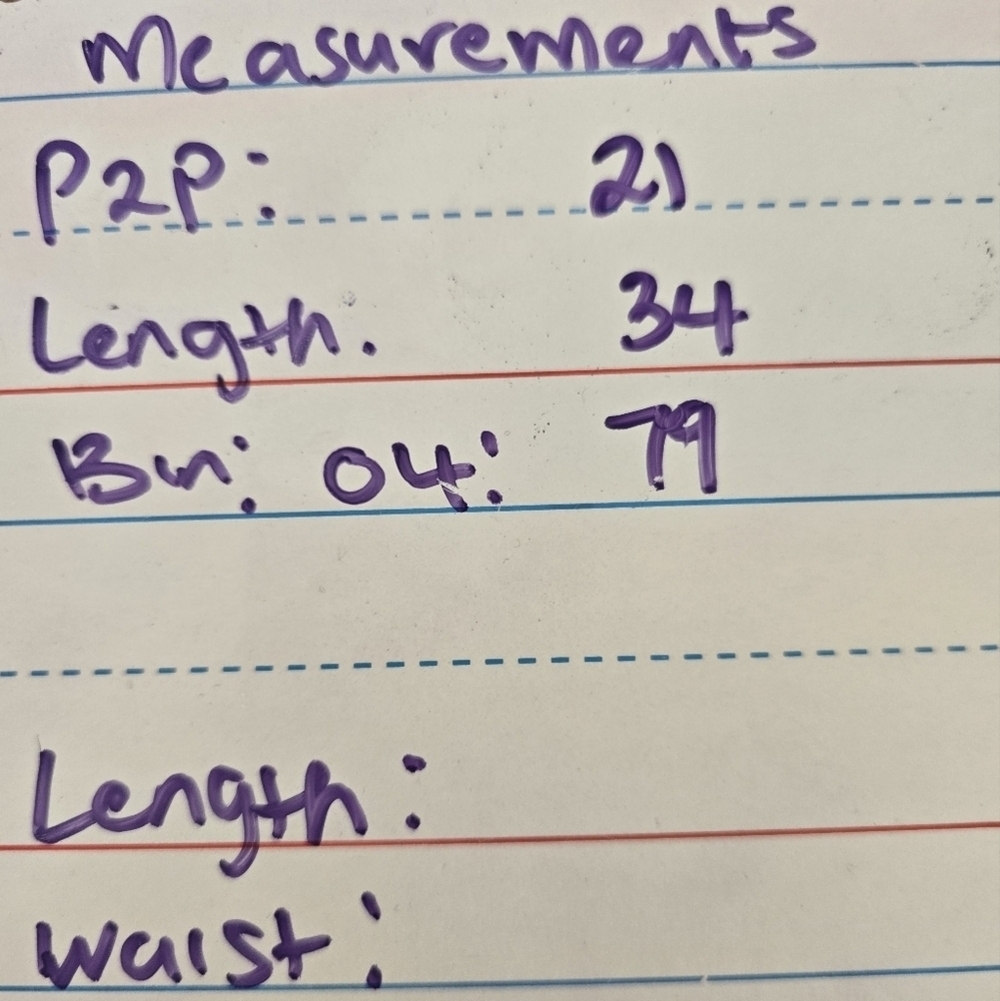 Measurements
P2P: 21
Length. 34
Bin: 04: 79
Length:
Waist: